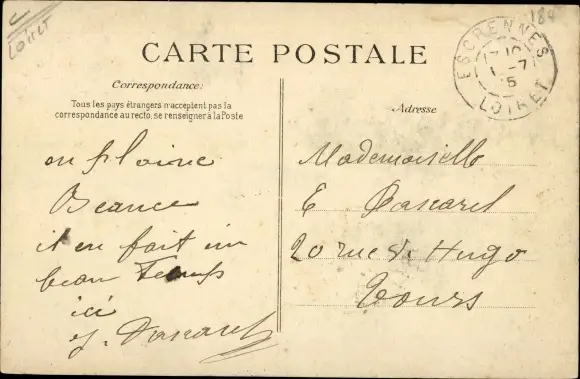 Loiret
184
CARTE POSTALE
ESCRENNES
LOIRET
Correspondance:
Tous les pays étrangers n'acceptent pas la
correspondance au recto, se renseigner à la Poste
Adresse
en plaine
Beauce
il en fait un
beau Temps
ici
Mademoiselle
E
20 rue V. Hugo
Tours